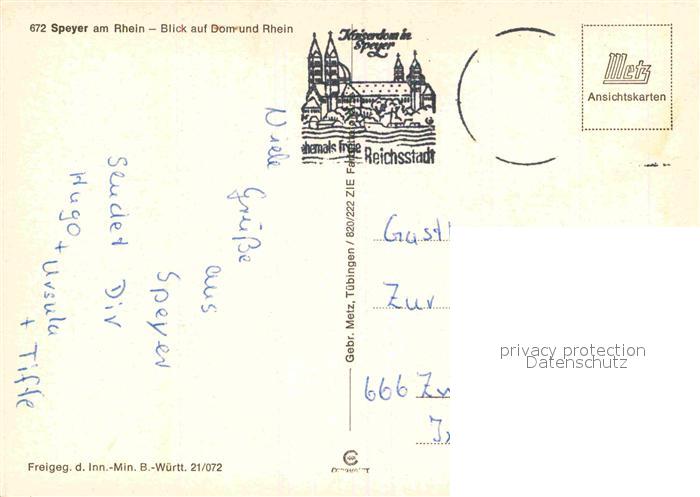 672 Speyer am Rhein – Blick auf Dom und Rhein
Kaiserdom in
Speyer
ehemals freie
Reichsstadt
Metz
Ansichtskarten
Viele
Grüße
aus
Speyer
Sendet Dir
Hugo + Ursula
+ Tiffe
Gebr. Metz, Tübingen / 820/222 ZIE
Gast
Zur
666 Zw
privacy protection
Datenschutz
Freigeg. d. Inn.-Min. B.-Württ. 21/072